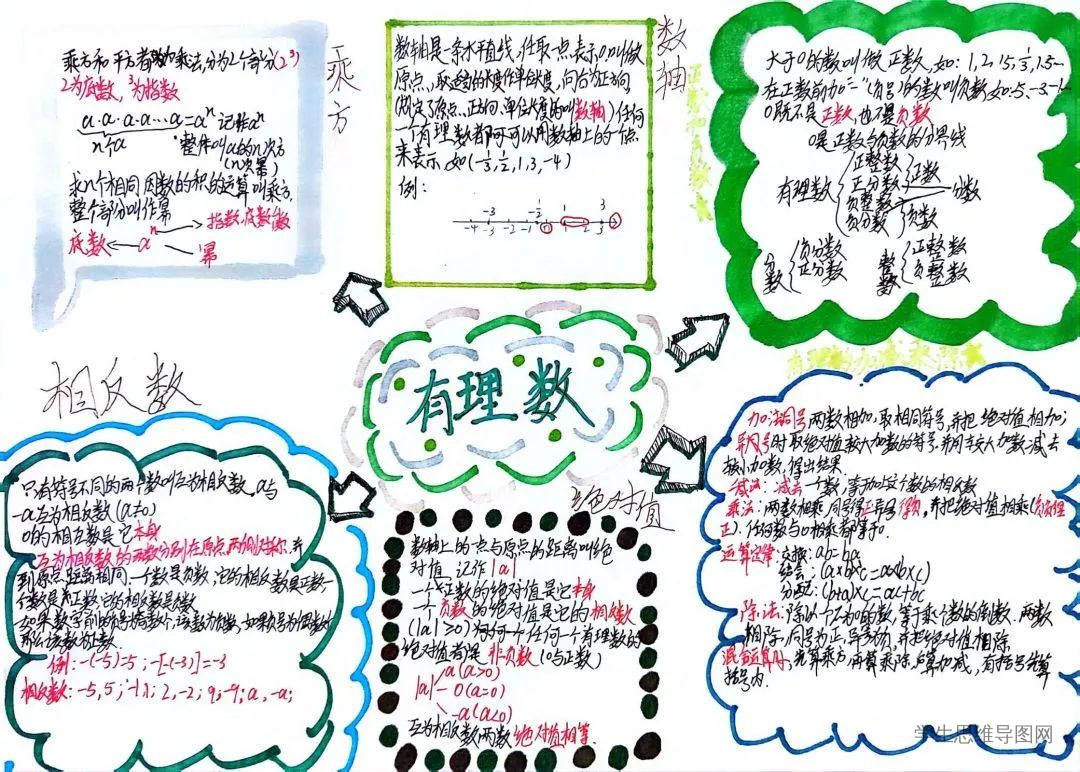 乘方
乘方和平方都为乘法,分为2个部分(2³)
2为底数,³为指数
a·a·a·a…a=aⁿ 记作aⁿ
n个a
整体叫a的n次方
(n次幂)
求n个相同因数的积的运算叫乘方,
整个部分叫作幂
指数,底数
底数 aⁿ
幂
数轴
数轴是一条水平直线,任取一点表示0,叫做
原点,取适当长度作单位长度,向右为正方向
(规定了原点、正方向、单位长度的叫数轴)任何
一个有理数都可以用数轴上的一个点
来表示,如(-⅓,½,1,3,-4)
例:
-3 -⅓ 1 3
-4 -3 -2 -1 0 2 3
正数和负数
大于0的数叫做正数,如:1,2,15,½,1.5…
在正数前加“-”(负号)的数叫负数,如:-5,-3,-1…
0既不是正数,也不是负数
0是正数与负数的分界线
有理数
正整数
正分数
负整数
负分数
正数
分数
负数
分数
负分数
正分数
整数
正整数
负整数
有理数
相反数
只有符号不同的两个数叫互为相反数,a与
-a互为相反数(a≠0)
0的相反数是它本身
互为相反数的两数分别在原点两侧对称,并
到原点距离相同,一个数是负数,它的相反数是正数,一
个数是正数,它的相反数是负数
如果数字前的负号为奇数个,该数为负数,如果负号为偶数个
那么该数为正数.
例:-(-5)=5;-[-(-3)]=-3
相反数:-5,5;-1,1;2,-2;9,-9;a,-a;
绝对值
数轴上的一点与原点的距离叫绝
对值,记作|a|
一个正数的绝对值是它本身
一个负数的绝对值是它的相反数
(|a|≥0)为何一个任何一个有理数的
绝对值都是非负数(0与正数)
|a|
a(a>0)
0(a=0)
-a(a<0)
互为相反数两数绝对值相等.
有理数的加减乘除
加法:同号两数相加,取相同符号,并把绝对值相加;
异号时取绝对值较大加数的符号,并用较大加数减去
较小加数,得出结果
减法:减去一个数,等于加这个数的相反数
乘法:两数相乘,同号得正异号得负,并把绝对值相乘(负负得
正).任何数与0相乘都等于0.
运算定律:交换:ab=ba
结合:(a×b)×c=a×(b×c)
分配:(b+a)×c=ac+bc
除法:除以一个不为0的数,等于乘这个数的倒数.两数
相除,同号为正,异号为负,并把绝对值相除
混合运算时,先算乘方,再算乘除,后算加减,有括号先算
括号内.
学生思维导图网